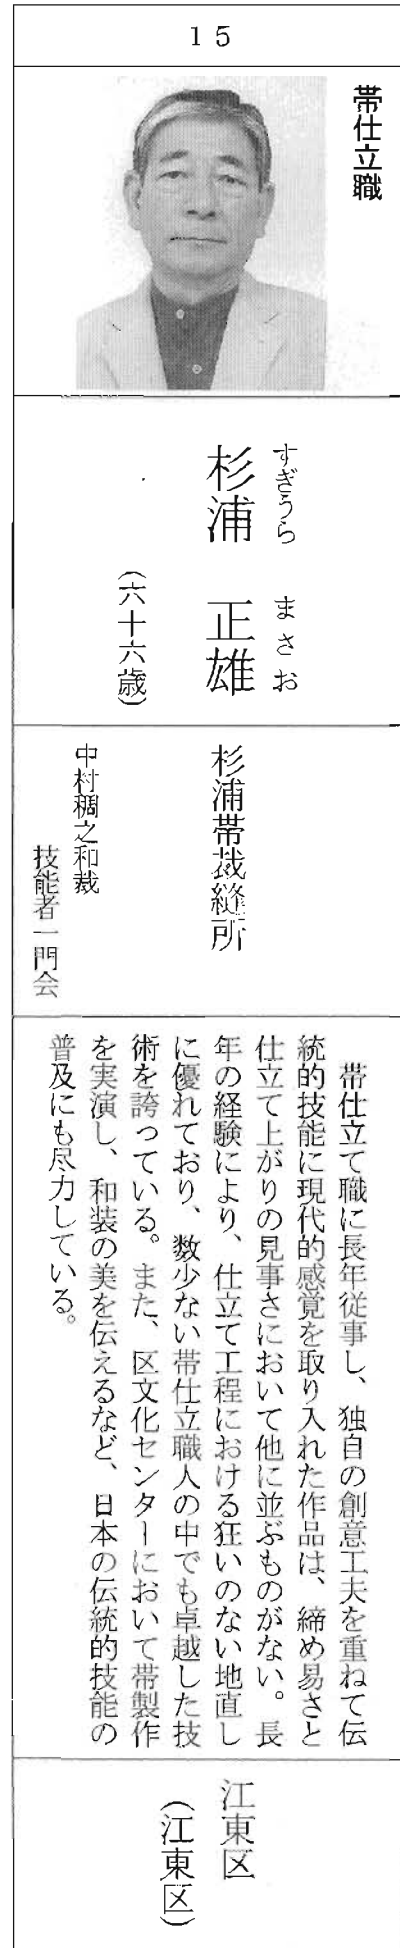 15
帯仕立職
すぎうら まさお
杉浦 正雄
(六十六歳)
杉浦帯裁縫所
中村稠之和裁
技能者一門会
帯仕立て職に長年従事し、独自の創意工夫を重ねて伝
統的技能に現代的感覚を取り入れた作品は、締め易さと
仕立て上がりの見事さにおいて他に並ぶものがない。長
年の経験により、仕立て工程における狂いのない地直し
に優れており、数少ない帯仕立職人の中でも卓越した技
術を誇っている。また、区文化センターにおいて帯製作
を実演し、和装の美を伝えるなど、日本の伝統的技能の
普及にも尽力している。
江東区
(江東区)